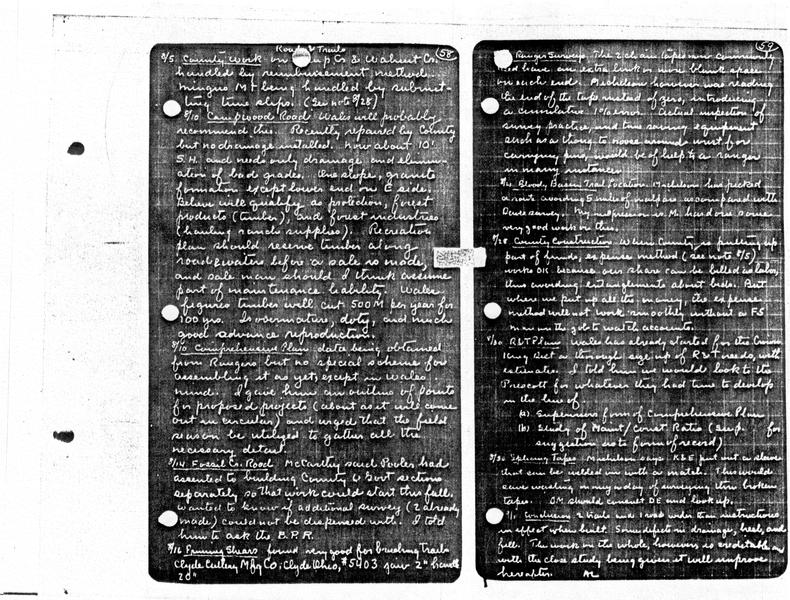 Roads & Trails
58
8/5 County Work on Camp Co & Walnut Co.
handled by reimbursement method.
Mingus Mt being handled by submit-
ting time slips. (See note 8/28)
8/10 Campwood Road Wales will probably
recommend this. Recently repaired by County
but no drainage installed. Now about 10'
S.H. and needs only drainage and elimin-
ation of bad grades. One slope, granite
formation except lower end on E side.
Believe will qualify as protection, forest
products (timber), and forest industries
(hauling ranch supplies). Recreation
plan should reserve timber along
road & waters before a sale is made,
and sale man should I think assume
part of maintenance liability. Wales
figures timber will cut 500M per year for
100 yrs. Is overmature, doty, and much
good advance reproduction.
8/10 Comprehensive Plan data being obtained
from Rangers but no special scheme for
assembling it as yet, except in Wales
mind. I gave him an outline of points
for proposed projects (about as it will come
out in circular) and urged that the field
season be utilized to gather all the
necessary detail.
8/14 Fossil Ck. Road McCarthy said Pooler had
assented to building County & Govt sections
separately so that work could start this fall.
Wanted to know if additional survey (2 already
made) could not be dispensed with. I told
him to ask the B.P.R.
8/16 Pruning Shears found very good for brushing trails
Clyde Cutlery Mfg Co; Clyde Ohio, #5403 jaw 2" handle
20"
59
Ranger Surveys. The 2 chain tapes now commonly
used have an extra link or more blank space
on each end. Michelson however was reading
the end of the tape instead of zero, introducing
a cumulative 1% error. Actual inspection of
survey practice, and time saving equipment
such as a thong to noose around wrist for
carrying pins, would be of help to a ranger
in many instances.
Bloody Basin Trail Location. Michelson has picked
a route avoiding 5 miles of malpais as compared with
Dave survey. My impression is M. had done some
very good work on this.
8/28 County Construction Where County is putting up
part of funds, expense method (see note 8/5)
works OK because our share can be billed as labor,
thus avoiding entanglements about bids. But
where we put up all the money, the expense
method will not work smoothly without a FS
man on the job to watch accounts.
8/30 R&T Plans Wales has already started for the Crown
King Dist a through size up of R&T needs, with
estimates. I told him we would look to the
Prescott for whatever they had time to develop
in the line of
(a) Supervisors form of Comprehensive Plan
(b) Study of Maint/Const Ratio (See p. for
suggestion as to form of record)
8/30 Splicing Tapes Michelson says K&E put out a sleeve
that can be welded on with a match. This would
save wasting many a day of surveying thru broken
tapes. DM should consult DE and look up.
9/1 Conclusion 2 trails and 1 road under then instructions
in effect when built. Some defects in drainage, bench, and
fill. The work on the whole, however, is creditable and
with the close study being given it will improve
hereafter. AL